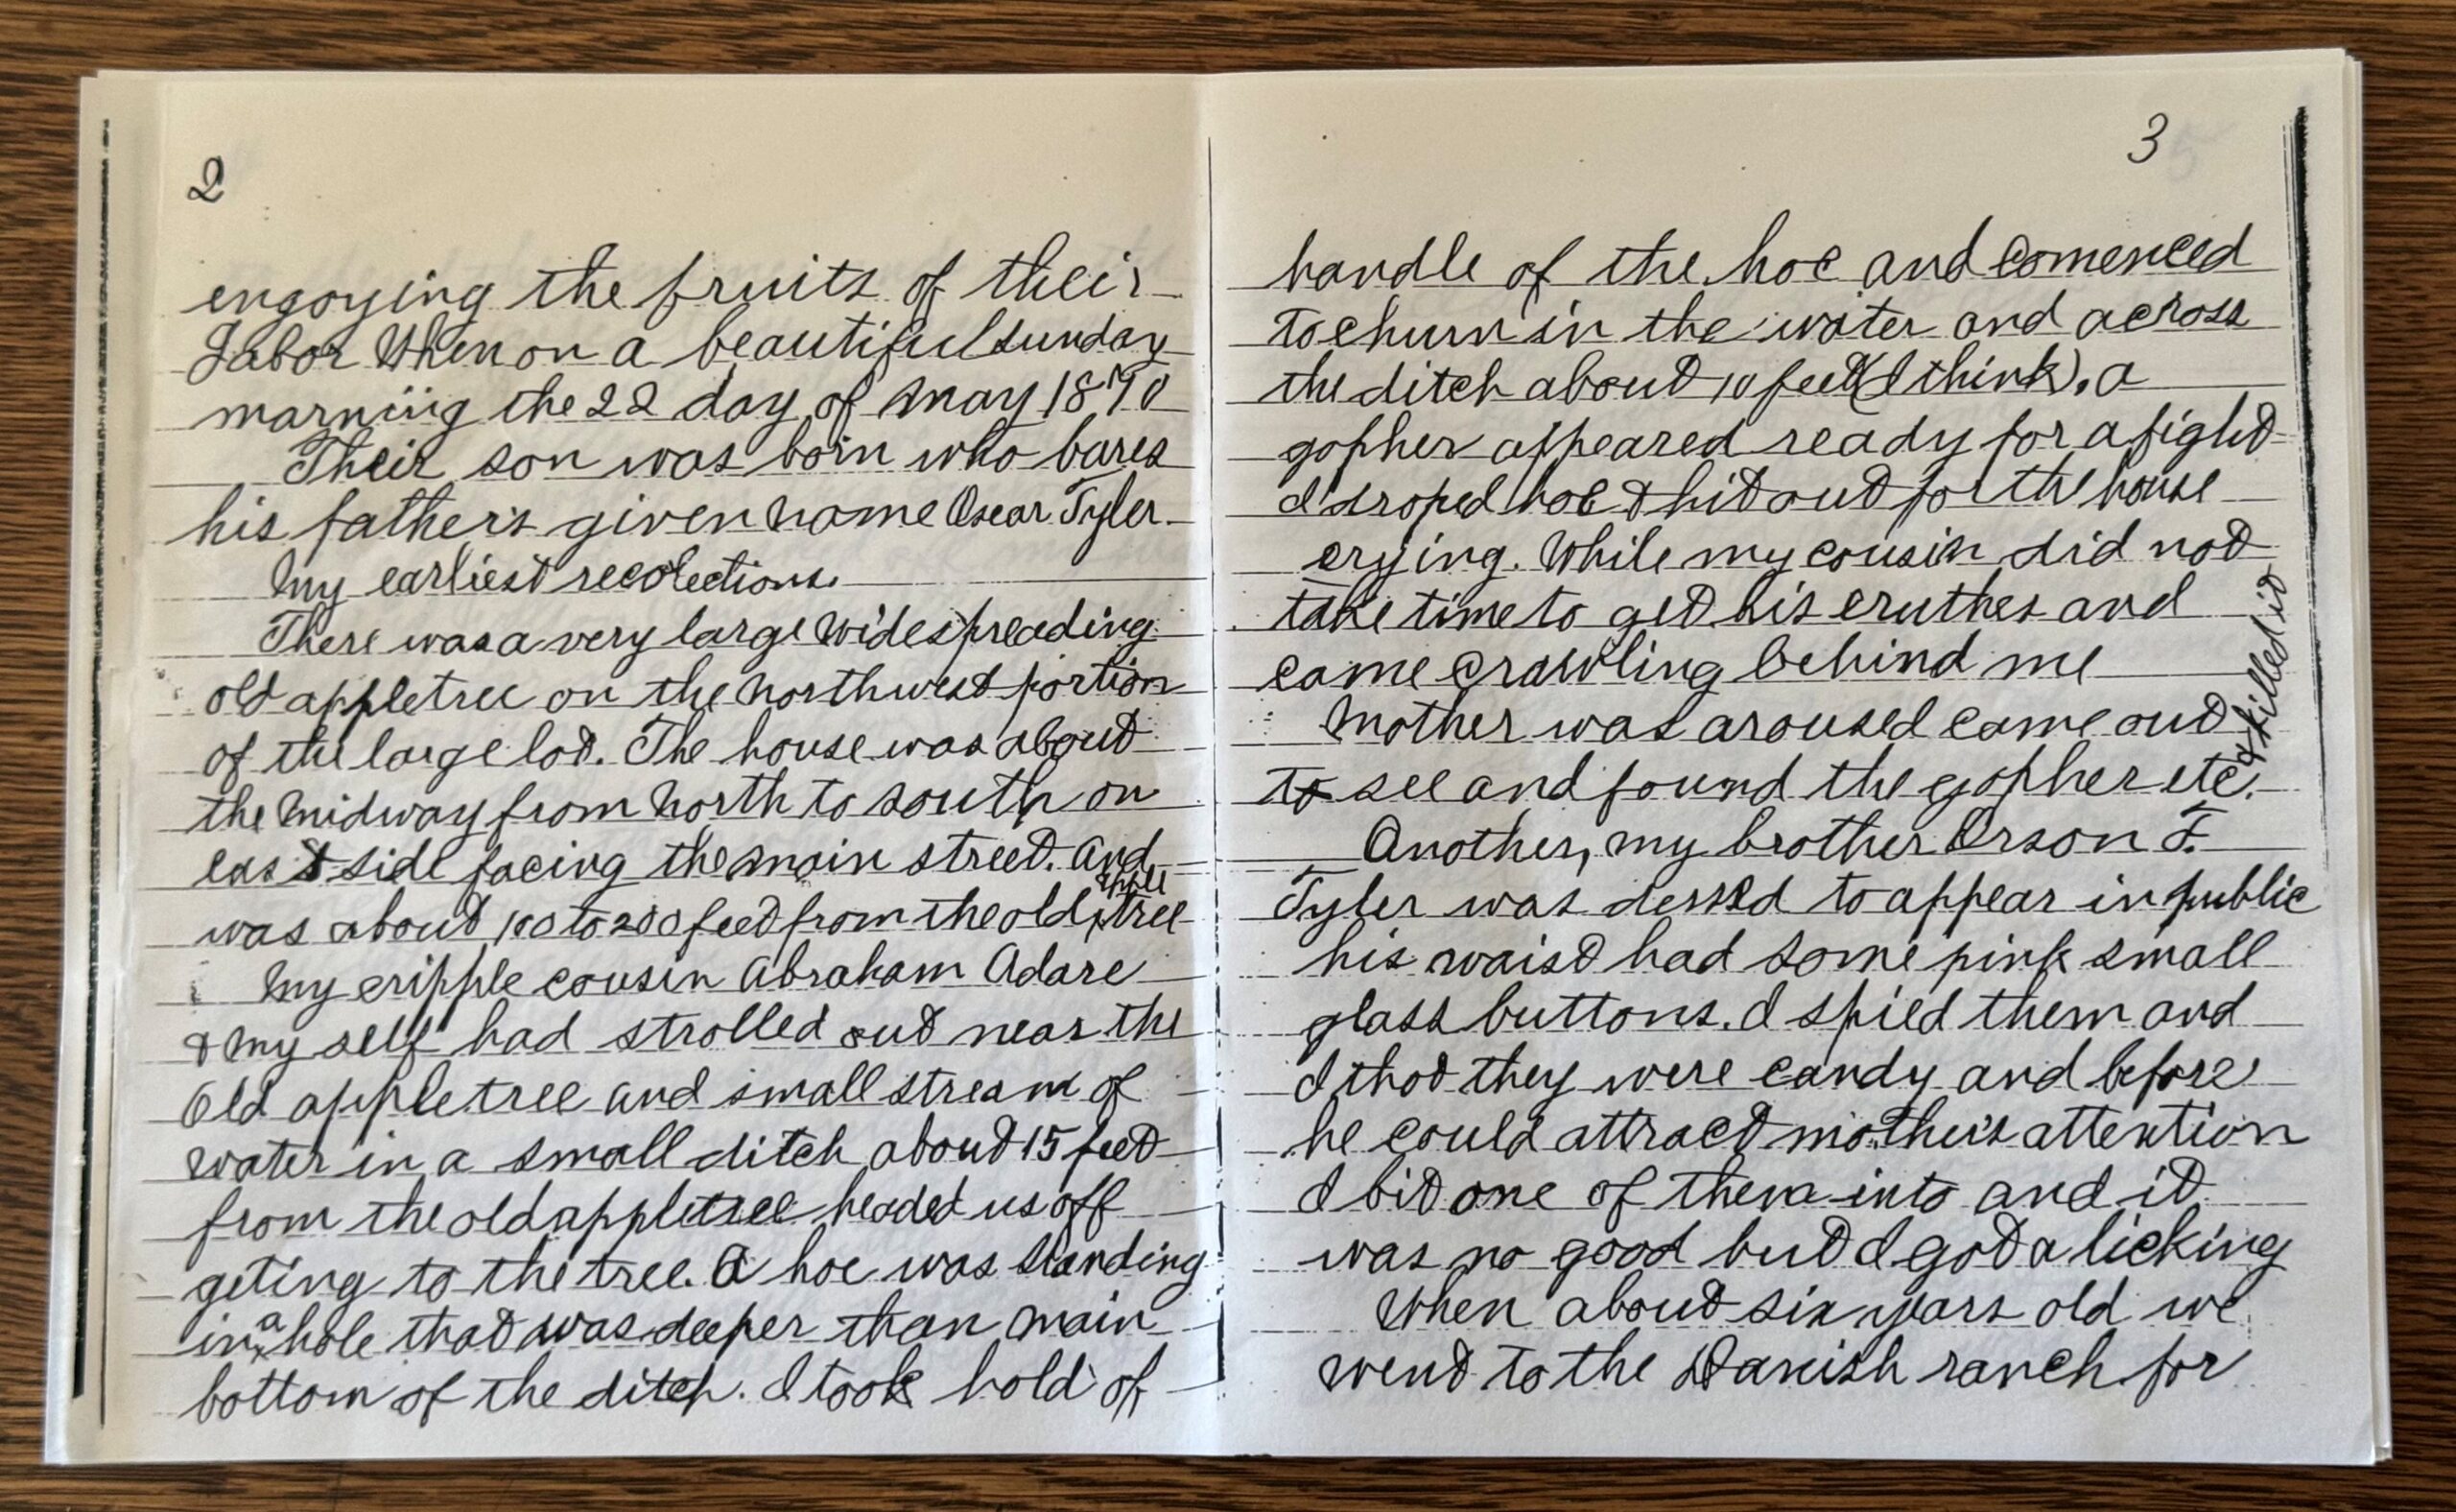 2
engoying the fruits of their
Labor When on a beautiful sunday
marniig the 22 day of May 1870
Their son was born who bares
his father's given name Oscar Tyler.
My earliest recolections.
There was a very large wide spreading
old appletree on the northwest portion
of the large lot. The house was about
the midway from North to south on
east side facing the main street. And
was about 100 to 200 feet from the old apple tree
My cripple cousin Abraham Adare
& my self had strolled out near the
Old appletree and small stream of
water in a small ditch about 15 feet
from the old appletree headed us off
geting to the tree. A hoe was standing
in a hole that was deeper than main
bottom of the ditch. I took hold of
3
handle of the hoe and comenced
to churn in the water and across
the ditch about 10 feet (I think). a
gopher appeared ready for a fight
I droped hoe & hit out for the house
crying. While my cousin did not
take time to get his cruthes and
came crawling behind me
Mother was aroused came out
to see and found the gopher etc. & killed it
Another, my brother Orson F.
Tyler was dressd to appear in public
his waist had some pink small
glass buttons. I spied them and
I thot they were candy and before
he could attract mother's attention
I bit one of them into and it
was no good but I got a licking
When about six years old we
went to the Danish ranch for